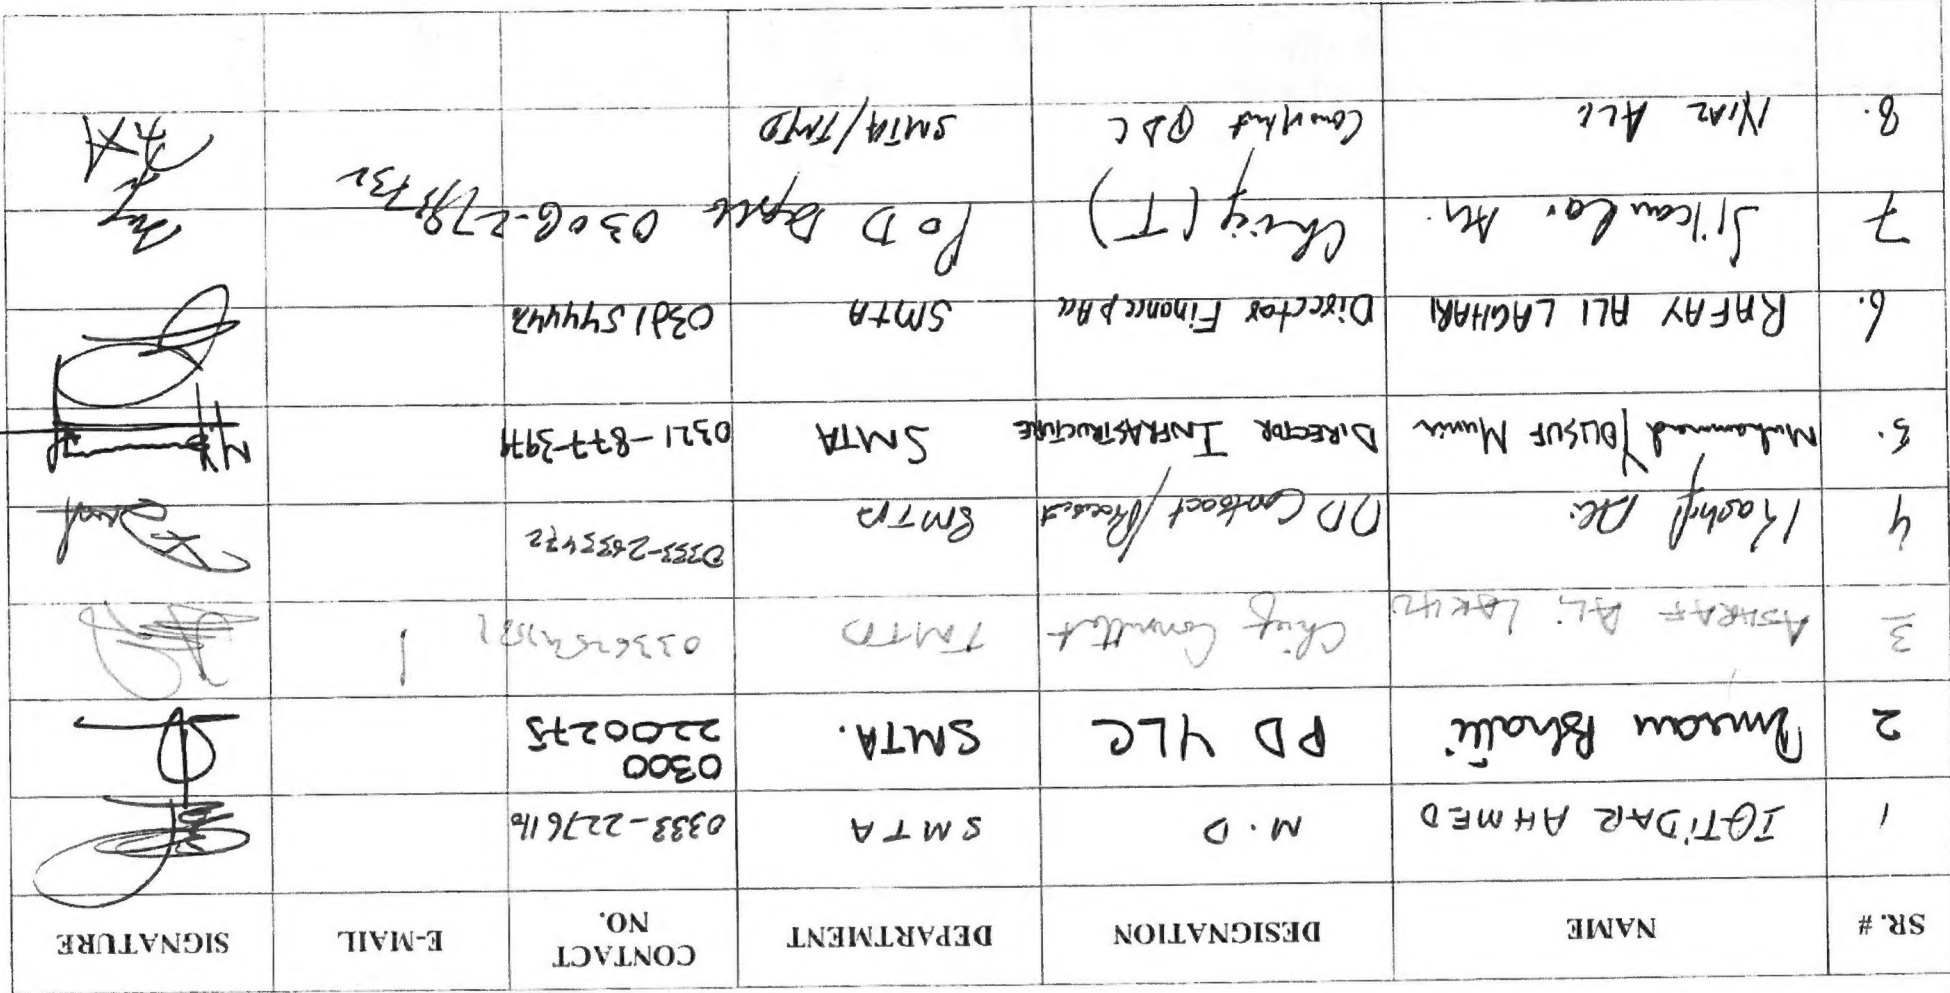 SR. # NAME DESIGNATION DEPARTMENT CONTACT NO. E-MAIL SIGNATURE
1 IQTIDAR AHMED M.D SMTA 0333-2276116
2 Imran Bhatti PD YLC SMTA. 0300 2200275
3 ASHRAF ALi Chief Consultant TMTD
4 Kashif Ali DD Contract/ SMTA 0333-2633472
5. Muhammad YOUSUF Munir DIRECTOR INFRASTRUCTURE SMTA 0321-877-3971
6. RAFAY ALI LAGHARI Director Finance SMTA
7 Chief (T) P&D
8. NIAZ ALi Consultant SMTA/TMTD